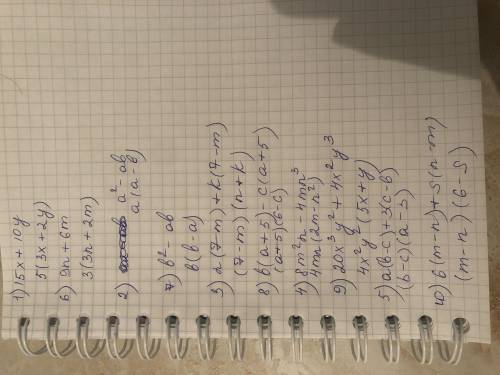 1) 15x + 10y
5(3x + 2y)
6) 9n + 6m
3(3n + 2m)
2) a² - ab
a(a - b)
7) b² - ab
b(b - a)
3) n(7-m) + k(7-m)
(7-m)(n+k)
8) b(a+5) - c(a+5)
(a+5)(b-c)
4) 8m²n - 4mn³
4mn(2m - n²)
9) 20x³y² + 4x²y³
4x²y²(5x+y)
5) a(b-c) + 3(c-b)
(b-c)(a-3)
10) 6(m-n) + s(n-m)
(m-n)(6-s)